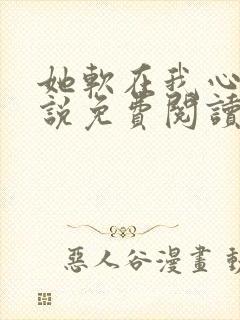 她軟在我心
說免費閱讀
惡人谷漫畫